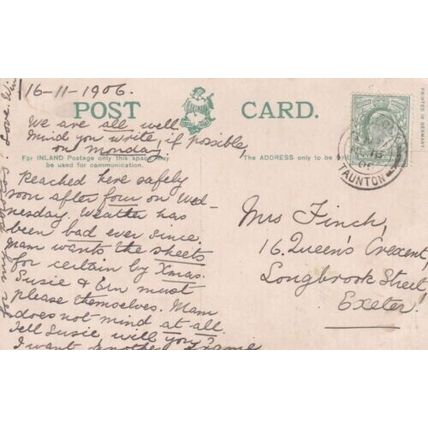 16-11-1906.
POST CARD.
We are all well
Mind you write if possible
on Monday!
For INLAND Postage only this space may
be used for communication.
The ADDRESS only to be
Reached here safely
soon after four on Wed-
nesday. Weather has
been bad ever since.
Mam wants the sheets
for certain by Xmas.
Susie & must
please themselves. Mam
does not mind at all.
Tell Susie will you?
I want another frame
for my
Love
Mrs Finch,
16. Queen's Crescent,
Longbrook Street,
Exeter.
TAUNTON
PRINTED IN GERMANY